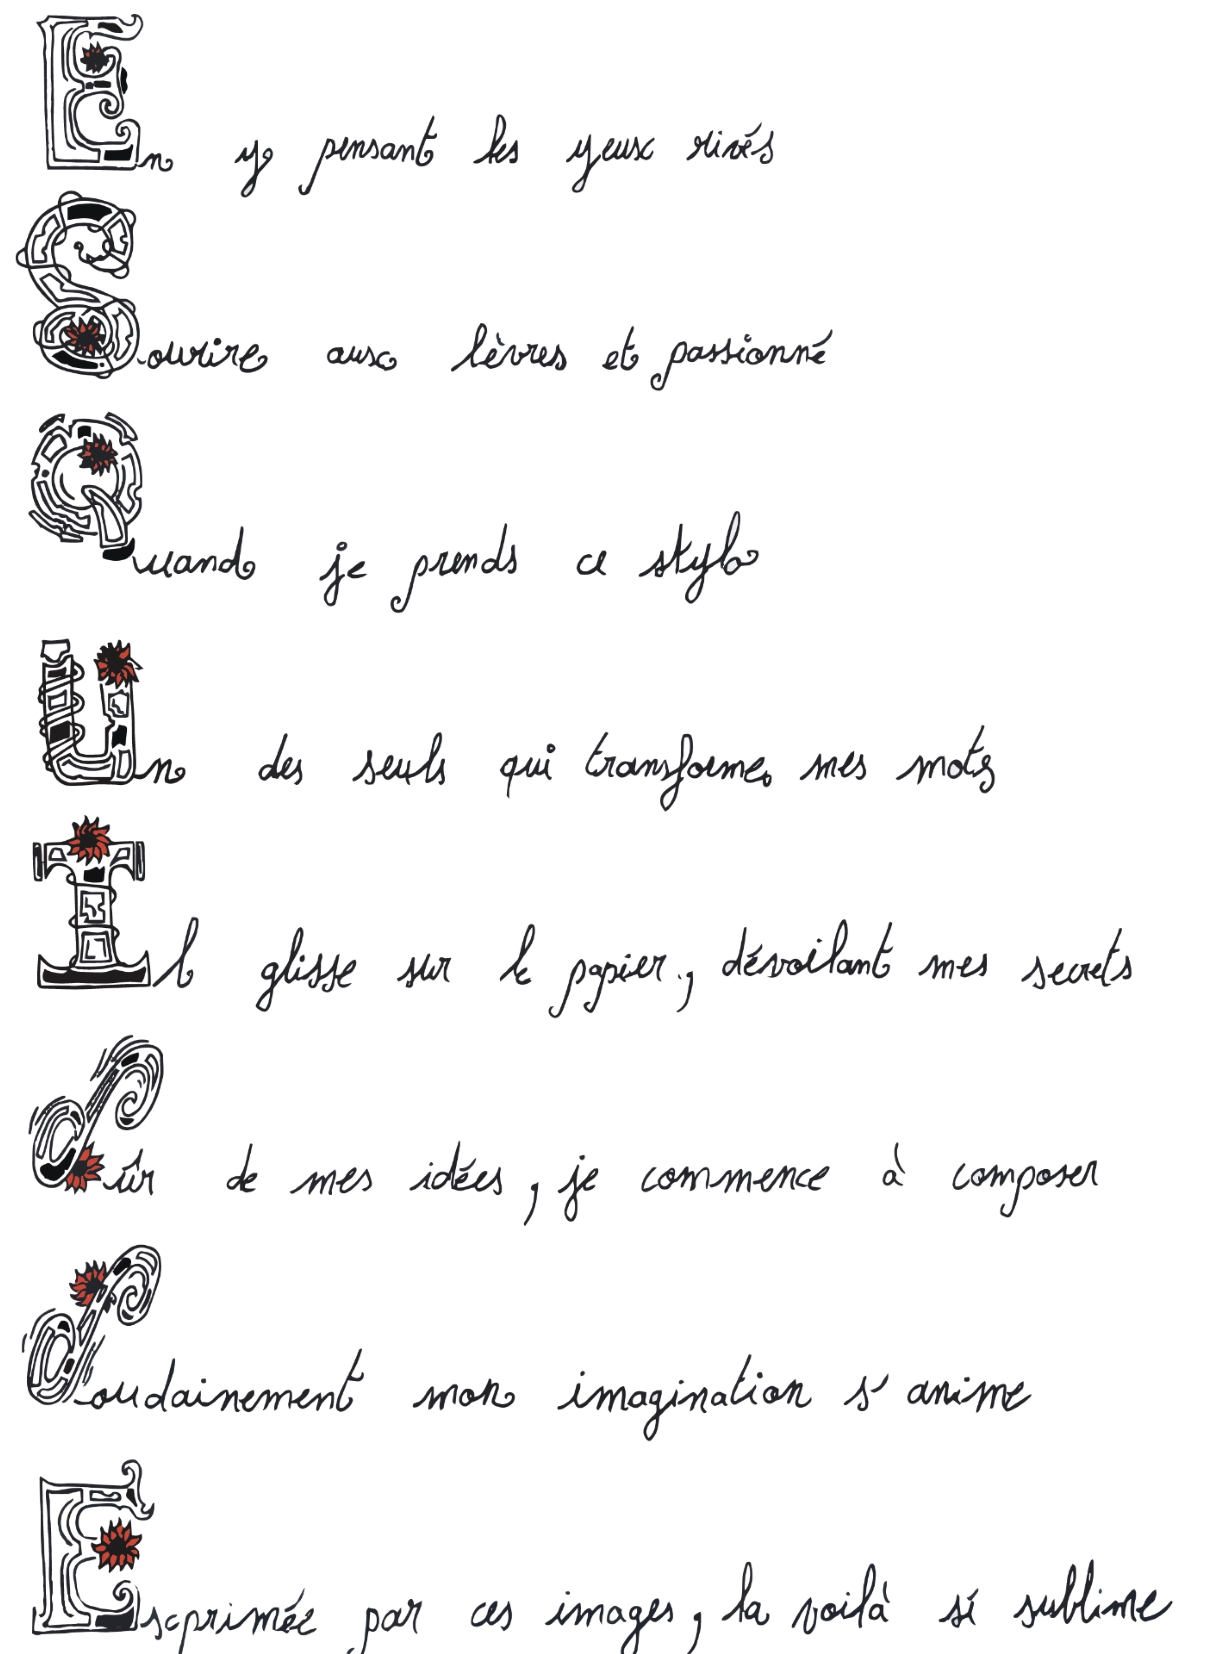 En y pensant les yeux rivés
Sourire aux lèvres et passionné
Quand je prends ce stylo
Un des seuls qui transforme mes mots
Il glisse sur le papier, dévoilant mes secrets
Sûr de mes idées, je commence à composer
Soudainement mon imagination s'anime
Exprimée par ces images, la voilà si sublime